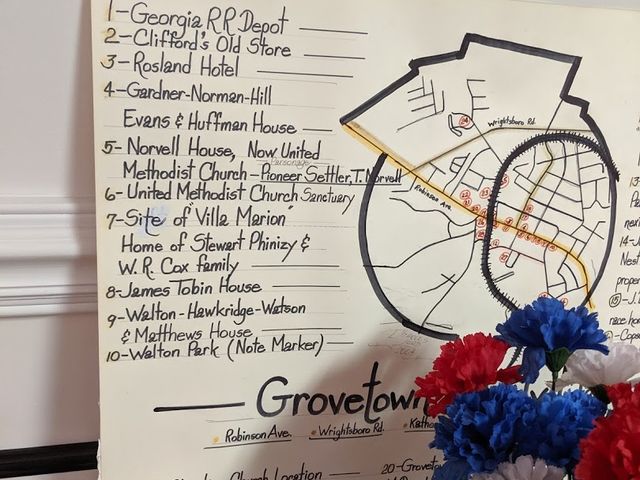 1-Georgia RR Depot
2-Clifford's Old Store
3-Rosland Hotel
4-Gardner-Norman-Hill
Evans & Huffman House
5- Norvell House, Now United
Parsonage
Methodist Church-Pioneer Settler, T. Norvell
6-United Methodist Church Sanctuary
7-Site of Villa Marion
Home of Stewart Phinizy &
W.R. Cox family
8-James Tobin House
9-Walton-Hawkridge-Watson
& Matthews House
10-Walton Park (Note Marker)
Wrightsboro Rd.
Robinson Ave.
13-
14-J
Nest
proper
15-J.
race ho
Grovetown
Robinson Ave. Wrightsboro Rd. Kath
Church Location
20-Grovet